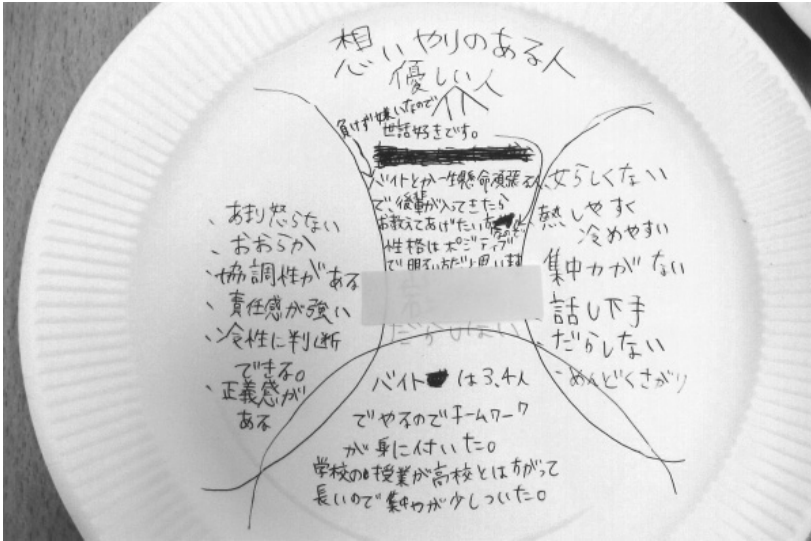 想いやりのある人
優しい人
負けず嫌いなので
世話好きです。
バイトとか一生懸命頑張る人
で、後輩が入ってきたら
お教えてあげたい方なので
性格はポジティブ
で明るい方だと思います
だらしない
、あまり怒らない
、おおらか
、協調性がある
、責任感が強い
、冷性に判断
できる。
、正義感が
ある
女らしくない
熱しやすく
冷めやすい
集中力がない
話し下手
だらしない
めんどくさがり
バイトは3,4人
でやるのでチームワーク
が身に付いた。
学校の授業が高校とはちがって
長いので集中が少しついた。